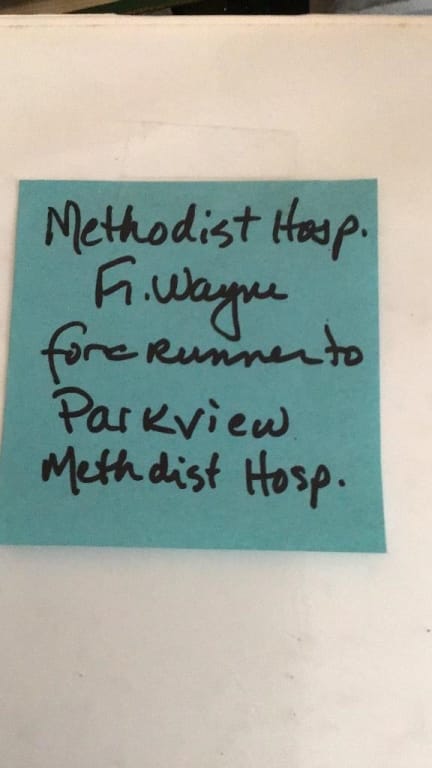 Methodist Hosp.
Ft. Wayne
forerunner to
Parkview
Methdist Hosp.